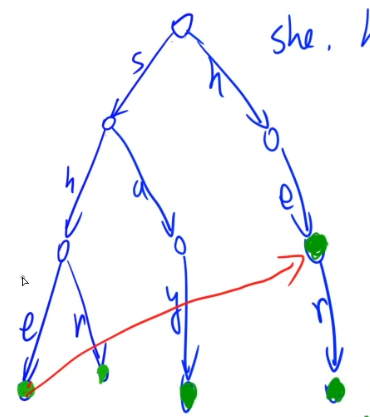 she.
s
h
h
a
e
e
r
y
r